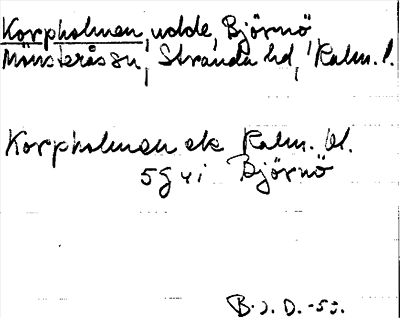 Korpholmen, udde, Björnö
Mönsterås sn, Stranda hd, Kalm. l.
Korpholmen ek Kalm. bl.
5g4i Björnö
B.J.D. -53.